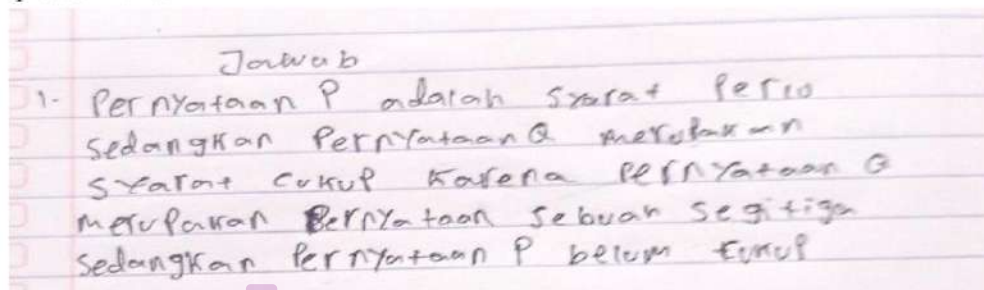 Jawab
1. Pernyataan P adalah syarat Perlu
sedangkan Pernyataan Q merupakan
syarat cukup karena pernyataan Q
merupakan Pernyataan sebuah segitiga
sedangkan Pernyataan P belum cukup